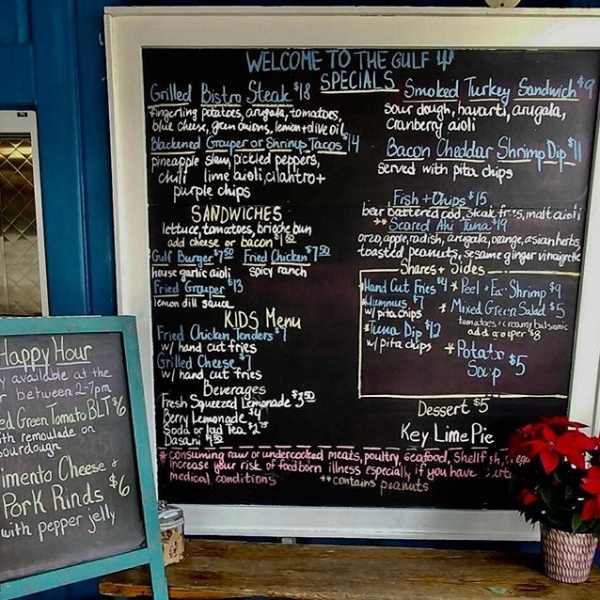 WELCOME TO THE GULF
SPECIALS
Grilled Bistro Steak $18
fingerling potatoes, arugala, tomatoes,
blue cheese, green onions, lemon + olive oil
Blackened Grouper or Shrimp Tacos $14
pineapple slaw, pickled peppers,
chili lime aioli, cilantro +
purple chips
SANDWICHES
lettuce, tomatoes, brioche bun
add cheese or bacon
Gulf Burger $7.50 Fried Chicken $7.50
house garlic aioli spicy ranch
Fried Grouper $13
lemon dill sauce
KIDS Menu
Fried Chicken Tenders $7
w/ hand cut fries
Grilled Cheese
w/ hand cut fries
Beverages
Fresh Squeezed Lemonade $3.50
Berry Lemonade $4
Soda or Iced Tea
Dasani
Smoked Turkey Sandwich $9
sour dough, havarti, arugala,
cranberry aioli
Bacon Cheddar Shrimp Dip $11
served with pita chips
Fish + Chips $15
beer battered cod, steak fries, malt aioli
**Seared Ahi Tuna $19
orzo, apple, radish, arugala, orange, asian herbs,
toasted peanuts, sesame ginger vinaigrette
Shares + Sides
Hand Cut Fries $4
Hummus $7
w/ pita chips
*Tuna Dip $12
w/ pita chips
*Peel + Eat Shrimp $9
*Mixed Green Salad $5
tomatoes + creamy balsamic
add grouper $8
*Potato
Soup $5
Dessert $5
Key Lime Pie
*consuming raw or undercooked meats, poultry, seafood, shellfish,
increase your risk of foodborn illness especially if you have
medical conditions **contains peanuts
Happy Hour
available at the
between 2-7pm
Green Tomato BLT $6
with remoulade on
sourdough
Pimento Cheese +
Pork Rinds $6
with pepper jelly